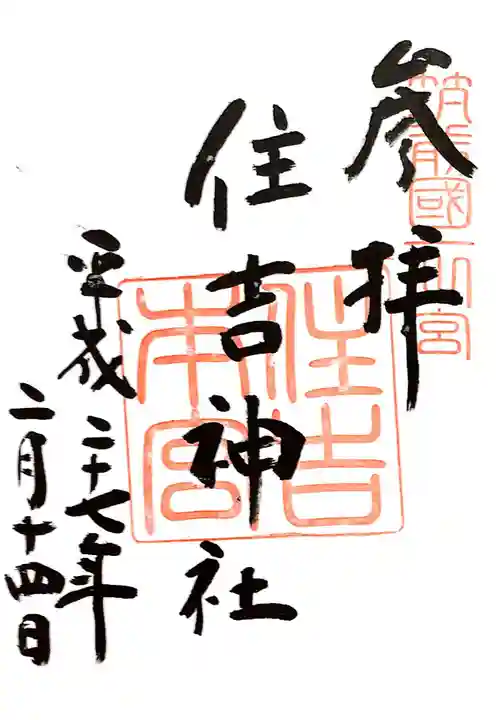 筑前國一之宮
参拝
住吉神社
住吉本宮
平成二十七年
二月十四日